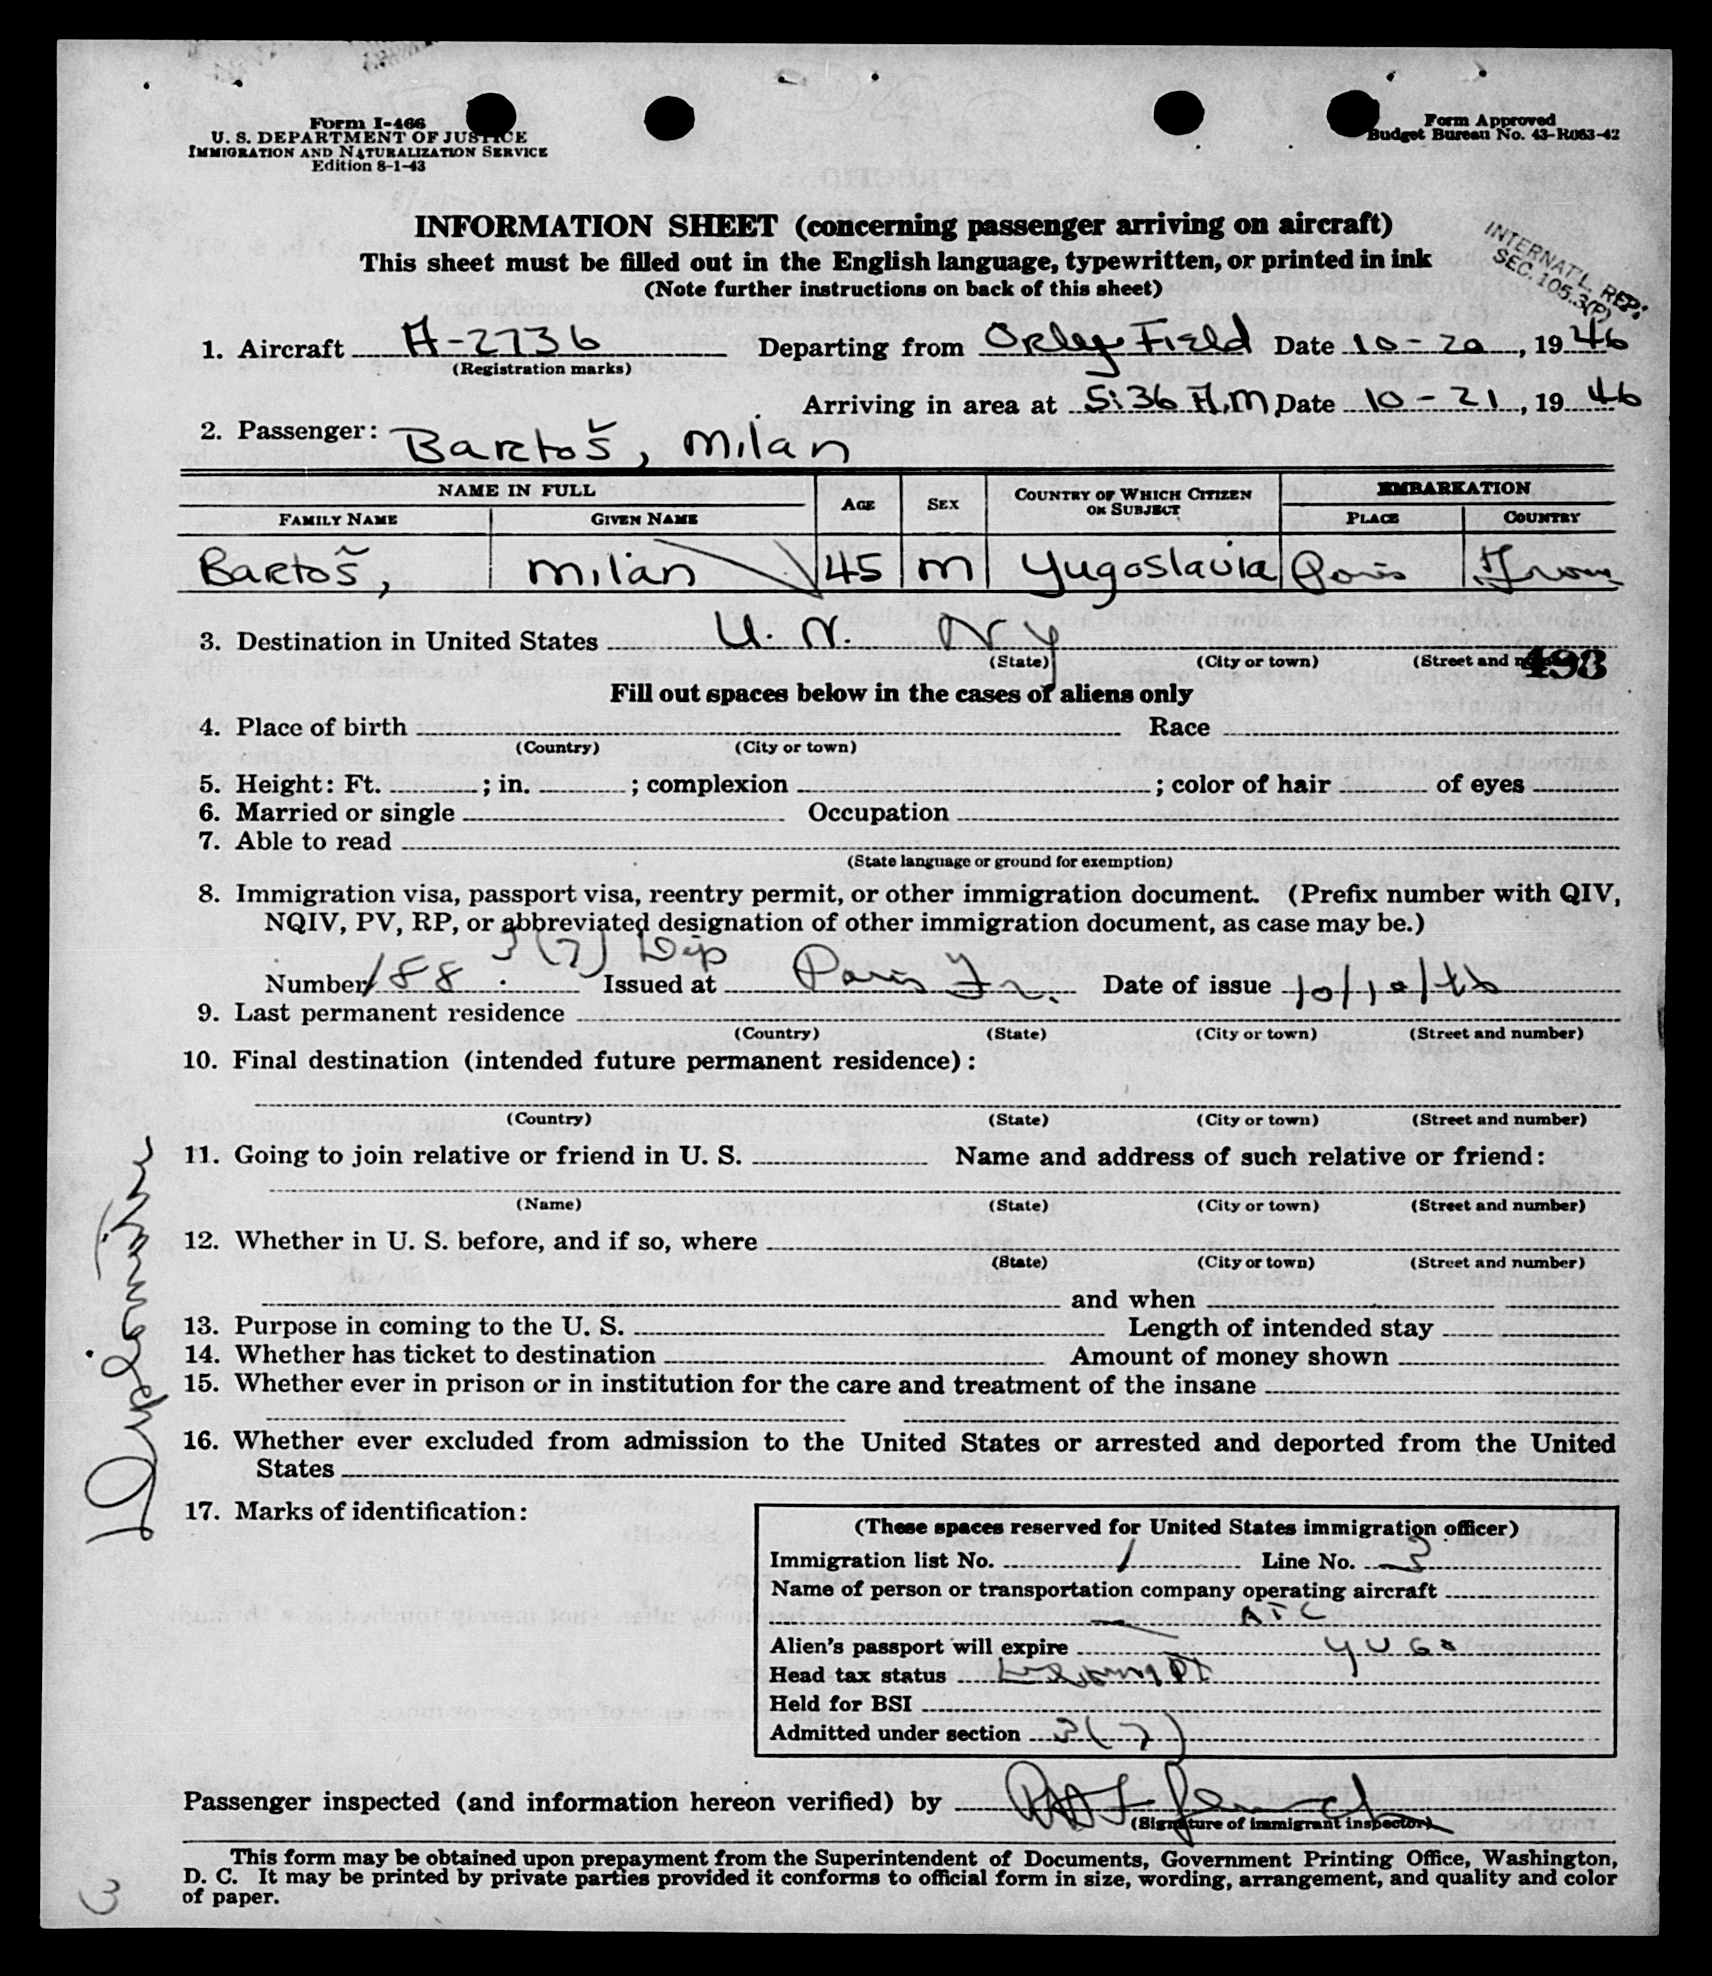 Form I-466
U. S. DEPARTMENT OF JUSTICE
IMMIGRATION AND NATURALIZATION SERVICE
Edition 8-1-43
Form Approved
Budget Bureau No. 43-R063-42
INFORMATION SHEET (concerning passenger arriving on aircraft)
This sheet must be filled out in the English language, typewritten, or printed in ink
(Note further instructions on back of this sheet)
INTERNAT'L. REP.
SEC. 105.3(P)
1. Aircraft A-2736 Departing from Orley Field Date 10-20, 1946
(Registration marks)
Arriving in area at 5:36 A.M Date 10-21, 1946
2. Passenger: Bartoš, Milan
NAME IN FULL AGE SEX COUNTRY OF WHICH CITIZEN OR SUBJECT EMBARKATION
FAMILY NAME GIVEN NAME PLACE COUNTRY
Bartoš, Milan 45 M Yugoslavia Paris
3. Destination in United States U. N. NY
(State) (City or town) (Street and
493
Fill out spaces below in the cases of aliens only
4. Place of birth Race
(Country) (City or town)
5. Height: Ft. ; in. ; complexion ; color of hair of eyes
6. Married or single Occupation
7. Able to read
(State language or ground for exemption)
8. Immigration visa, passport visa, reentry permit, or other immigration document. (Prefix number with QIV,
NQIV, PV, RP, or abbreviated designation of other immigration document, as case may be.)
3(7) Dip
Number 188 Issued at Paris Fr. Date of issue 10/10/46
9. Last permanent residence
(Country) (State) (City or town) (Street and number)
10. Final destination (intended future permanent residence):
(Country) (State) (City or town) (Street and number)
11. Going to join relative or friend in U. S. Name and address of such relative or friend:
(Name) (State) (City or town) (Street and number)
12. Whether in U. S. before, and if so, where
(State) (City or town) (Street and number)
and when
13. Purpose in coming to the U. S. Length of intended stay
14. Whether has ticket to destination Amount of money shown
15. Whether ever in prison or in institution for the care and treatment of the insane
16. Whether ever excluded from admission to the United States or arrested and deported from the United
States
17. Marks of identification:
(These spaces reserved for United States immigration officer)
Immigration list No. 1 Line No. 3
Name of person or transportation company operating aircraft
ATC
Alien's passport will expire Yugo
Head tax status
Held for BSI
Admitted under section 3(7)
Passenger inspected (and information hereon verified) by
(Signature of immigrant inspector)
This form may be obtained upon prepayment from the Superintendent of Documents, Government Printing Office, Washington,
D. C. It may be printed by private parties provided it conforms to official form in size, wording, arrangement, and quality and color
of paper.
3